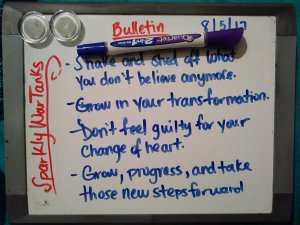 Bulletin
8/5/17
Quartet
- Shake and shed off what
you don't believe anymore.
- Grow in your transformation.
- Don't feel guilty for your
change of heart.
- Grow, progress, and take
those new steps forward
Sparkly War Tanks